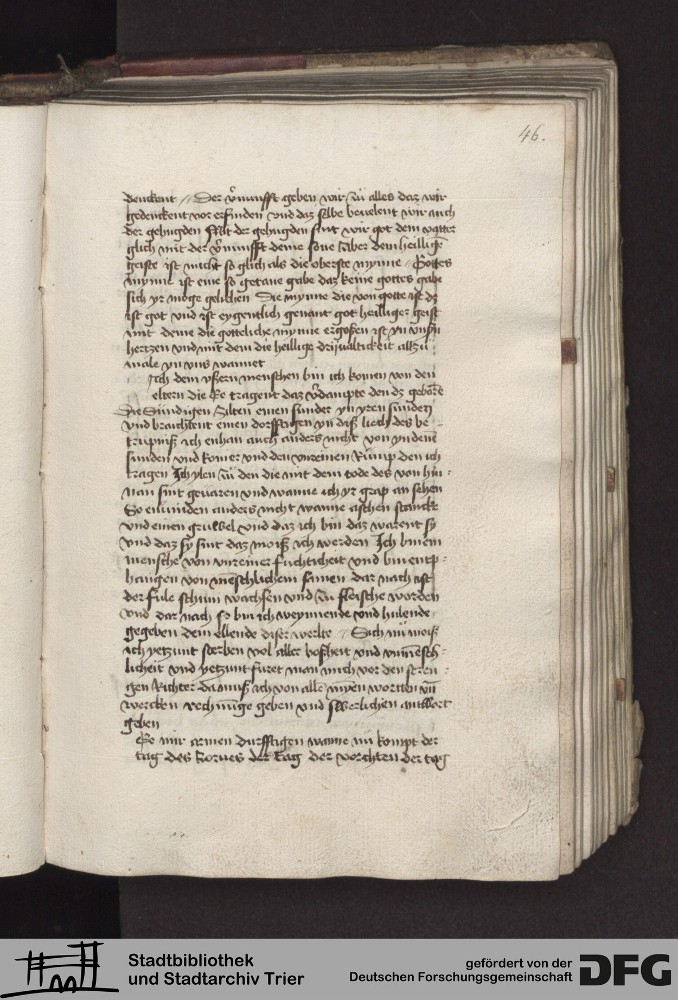 46.
denckent // Der v̾nunfft geben wir zü alles daz wir
gedenckent vor erfinden vnd daz selbe beuelent wir auch
der gehugden Mit der gehugden sint wir got dem vatter
glich mit der v̾nunfft deme sone Aber dem heillige
geiste ist nicht so glich als die oberste mynne // Gottes
mynne ist eine so getane gabe daz keine gottes gabe
sich yr möge gelichen Die mynne die von gotte ist dz
ist got vnd ist eygentlich genant got heilliger geist
mit deme die gotteliche mynne ergoßen ist yn vnsyn
hertzen vnd mit dem die heillige drijualtickeit allzü
male yn vns wannet
Ich dem ysßern menschen bin ich komen von den
eltern die Ee tragent daz v̾dampte den dz geborē
Die Sündigen Alten einen sunder yn yren sunden
vnd brachtent einen dorfftigen yn diß liecht des be-
trupniß ich enhan auch anders nicht von yn denē
sunden vnd komer vnd den vnreinen Rümp den ich
tragen Ich ylen zü den die mit dem tode des von hin-
nan sint geuaren vnd wanne ich yr grap an sehen
So enuinden anders nicht wanne aschen stanck
vnd einen gruwel vnd daz ich bin daz warent sy
vnd daz sy sint daz moiß ich werden Ich bin ein
mensche von vnreiner fuchtickeit vnd bin entp-
hangen von mēschlichem samen dar nach ist
der füle schum wachsen vnd zü fleische worden
vnd dar nach so bin ich weynnende vnd hulende
gegeben dem ellende diser werlte // Sich nü moiß
ich yetzunt sterben vol aller boßheit vnd vnmēsch-
licheit vnd yetzunt füret man mich vor den stren-
gen Richter da müß ich von alle mynen wortten vn̄
wercken rechnu̅ge geben vnd swerlichen antwort
geben
Ee mir armen durfftigen wanne nu kompt der
tag des zornes der tag der vorchten der tag
Stadtbibliothek
und Stadtarchiv Trier
gefördert von der
Deutschen Forschungsgemeinschaft
DFG